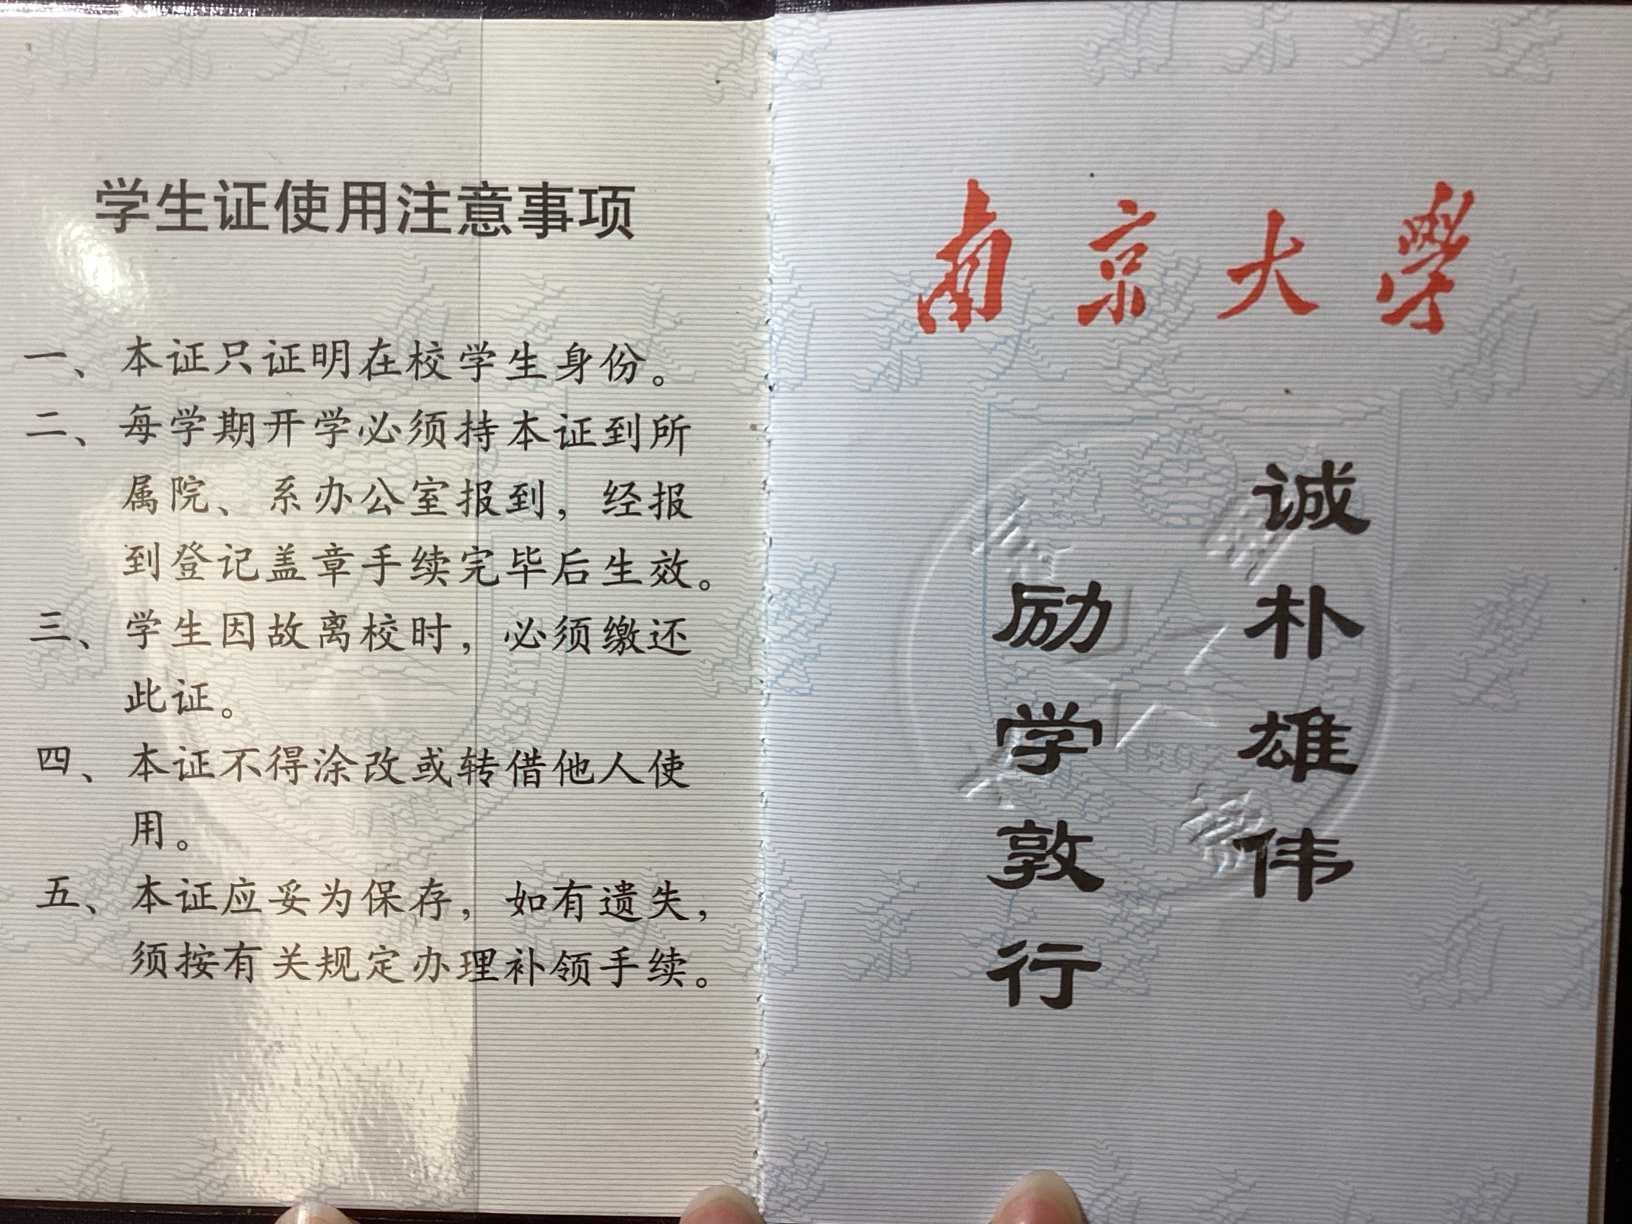 学生证使用注意事项
一、本证只证明在校学生身份。
二、每学期开学必须持本证到所
属院、系办公室报到，经报
到登记盖章手续完毕后生效。
三、学生因故离校时，必须缴还
此证。
四、本证不得涂改或转借他人使
用。
五、本证应妥为保存，如有遗失，
须按有关规定办理补领手续。
南京大學
诚朴雄伟
励学敦行